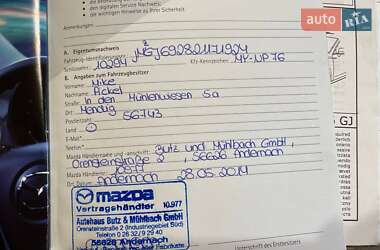 den digitalen Service Nachweis
die wichtigen Hinweise zu Ihrer Sicherheit.
auto RIA
A. Eigentumsnachweis
Fahrzeug-Identifizierungs
JMZGJ692801171924
Schlüsselnr. 10294 Kfz-Kennzeichen MY-NP76
B. Angaben zum Fahrzeugbesitzer
Vorname Mike
Name Pickel
Straße In den Mühlenwiesen 5a
Ort Mendig
Postleitzahl 56743
Land
E-Mail*
Telefon*
Mazda Händlername und -anschrift Butz und Mühlbach GmbH,
Orensteinstraße 2, 56626 Andernach
Mazda Händlernr. 10977
Ort, Datum Andernach 28.05.2014
mazda
Vertragshändler 10.977
Autohaus Butz & Mühlbach GmbH
Orensteinstraße 2 (Industriegebiet Süd)
Telefon 0 26 32 / 9 29 40
56626 Andernach
GJ